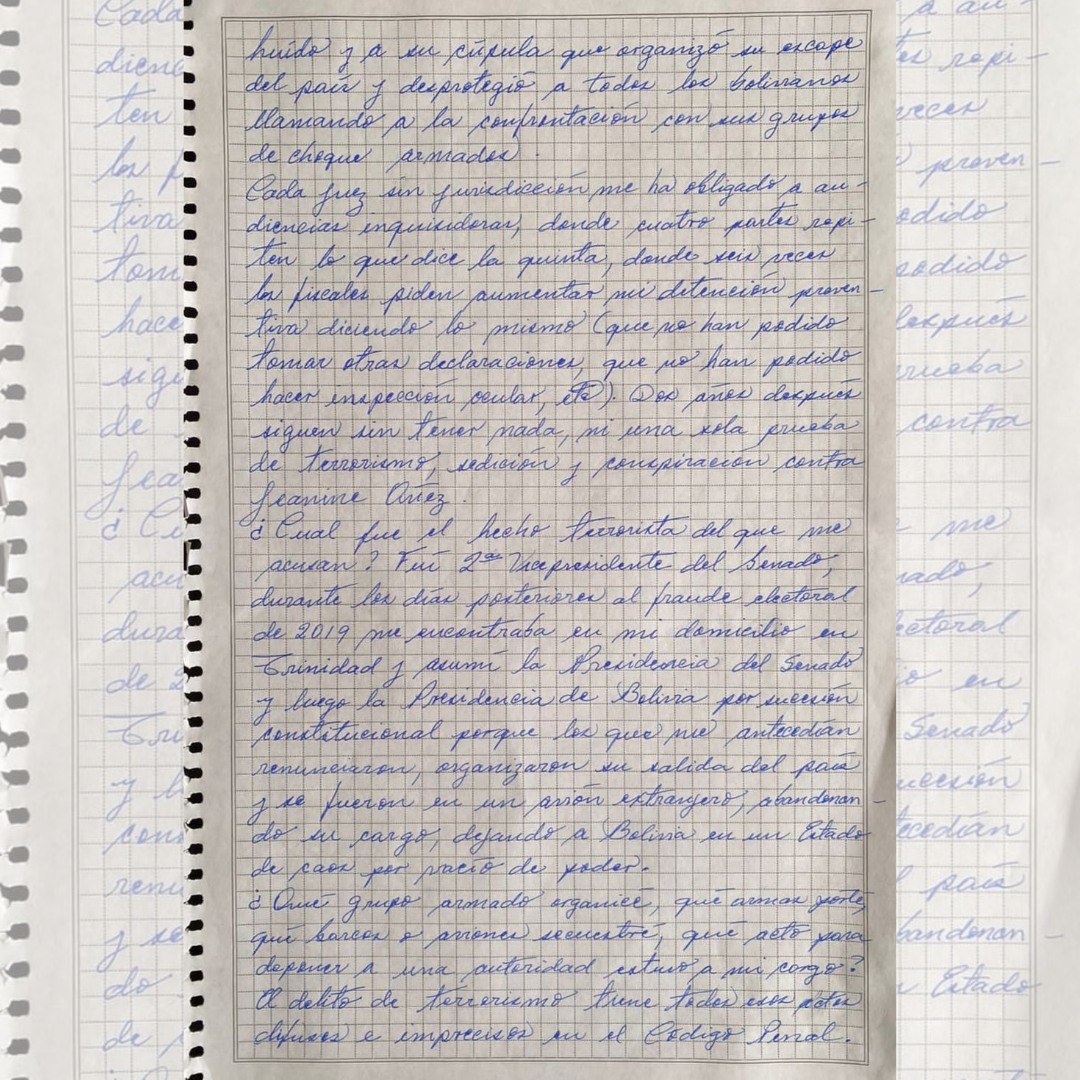 huído y a su cúpula que organizó su escape
del país y desprotegió a todos los bolivianos
llamando a la confrontación con sus grupos
de choque armados.
Cada juez sin jurisdicción me ha obligado a au-
diencias inquisidoras, donde cuatro partes repi-
ten lo que dice la quinta, donde seis veces
los fiscales piden aumentar mi detención preven-
tiva diciendo lo mismo (que no han podido
tomar otras declaraciones, que no han podido
hacer inspección ocular, etc). Dos años después
siguen sin tener nada, ni una sola prueba
de terrorismo, sedición y conspiración contra
Jeanine Añez.
¿Cual fue el hecho terrorista del que me
acusan? Fui 2da Vicepresidente del Senado,
durante los días posteriores al fraude electoral
de 2019 me encontraba en mi domicilio en
Trinidad y asumí la Presidencia del Senado
y luego la Presidencia de Bolivia por sucesión
constitucional porque los que me antecedían
renunciaron, organizaron su salida del país
y se fueron en un avión extranjero, abandonan-
do su cargo, dejando a Bolivia en un Estado
de caos por vacío de poder.
¿Qué grupo armado organicé, qué armas porté,
qué barcos o aviones secuestré, qué acto para
deponer a una autoridad estuvo a mi cargo?
El delito de terrorismo tiene todos esos actos
difusos e imprecisos en el Código Penal.